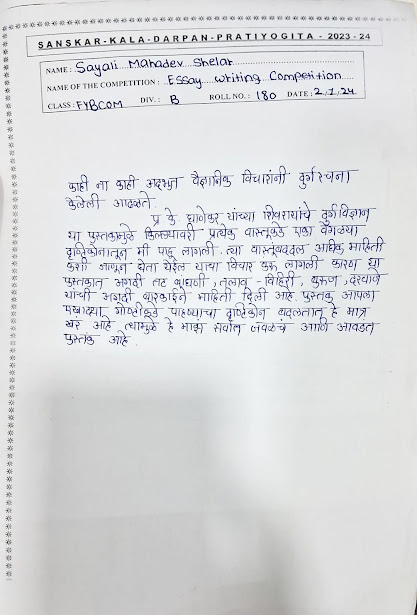 SANSKAR-KALA-DARPAN-PRATIYOGITA - 2023 - 24
NAME : Sayali Mahadev Shelar
NAME OF THE COMPETITION : Essay writing Competition
CLASS : FYBCOM DIV. : B ROLL NO. : 180 DATE : 2/1/24
काही ना काही अद्भुत वैज्ञानिक विचारांनी दुर्ग रचना
केलेली आढळते.
प्र के घाणेकर यांच्या शिवरायांचे दुर्गविज्ञान
या पुस्तकामुळे किल्ल्यावरी प्रत्येक वास्तूकडे एका वेगळ्या
दृष्टिकोनातून मी पाहू लागली. त्या वास्तूबद्दल अधिक माहिती
कशी जाणून घेता येईल याचा विचार करू लागली कारण या
पुस्तकात अगदी तट बांधणी, तलाव - विहिरी, बुरुज, दरवाजे
यांची अगदी बारकाईने माहिती दिली आहे. पुस्तक आपला
एखाद्या गोष्टीकडे पाहण्याचा दृष्टिकोन बदलतात हे मात्र
खरं आहे त्यामुळे हे माझं सर्वात जवळचं आणि आवडतं
पुस्तक आहे.